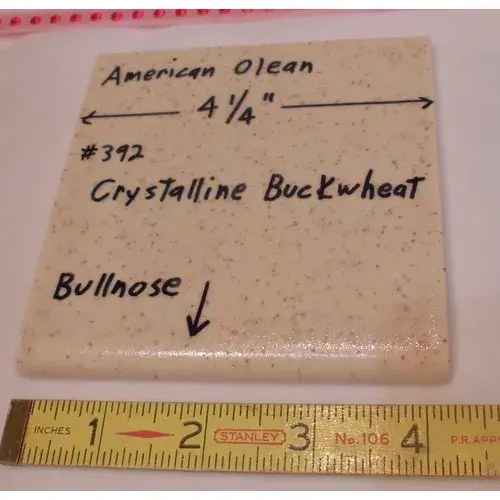 American Olean
4 1/4"
#392
Crystalline Buckwheat
Bullnose
INCHES 1 2 STANLEY 3 No. 106 4 P.R. APP